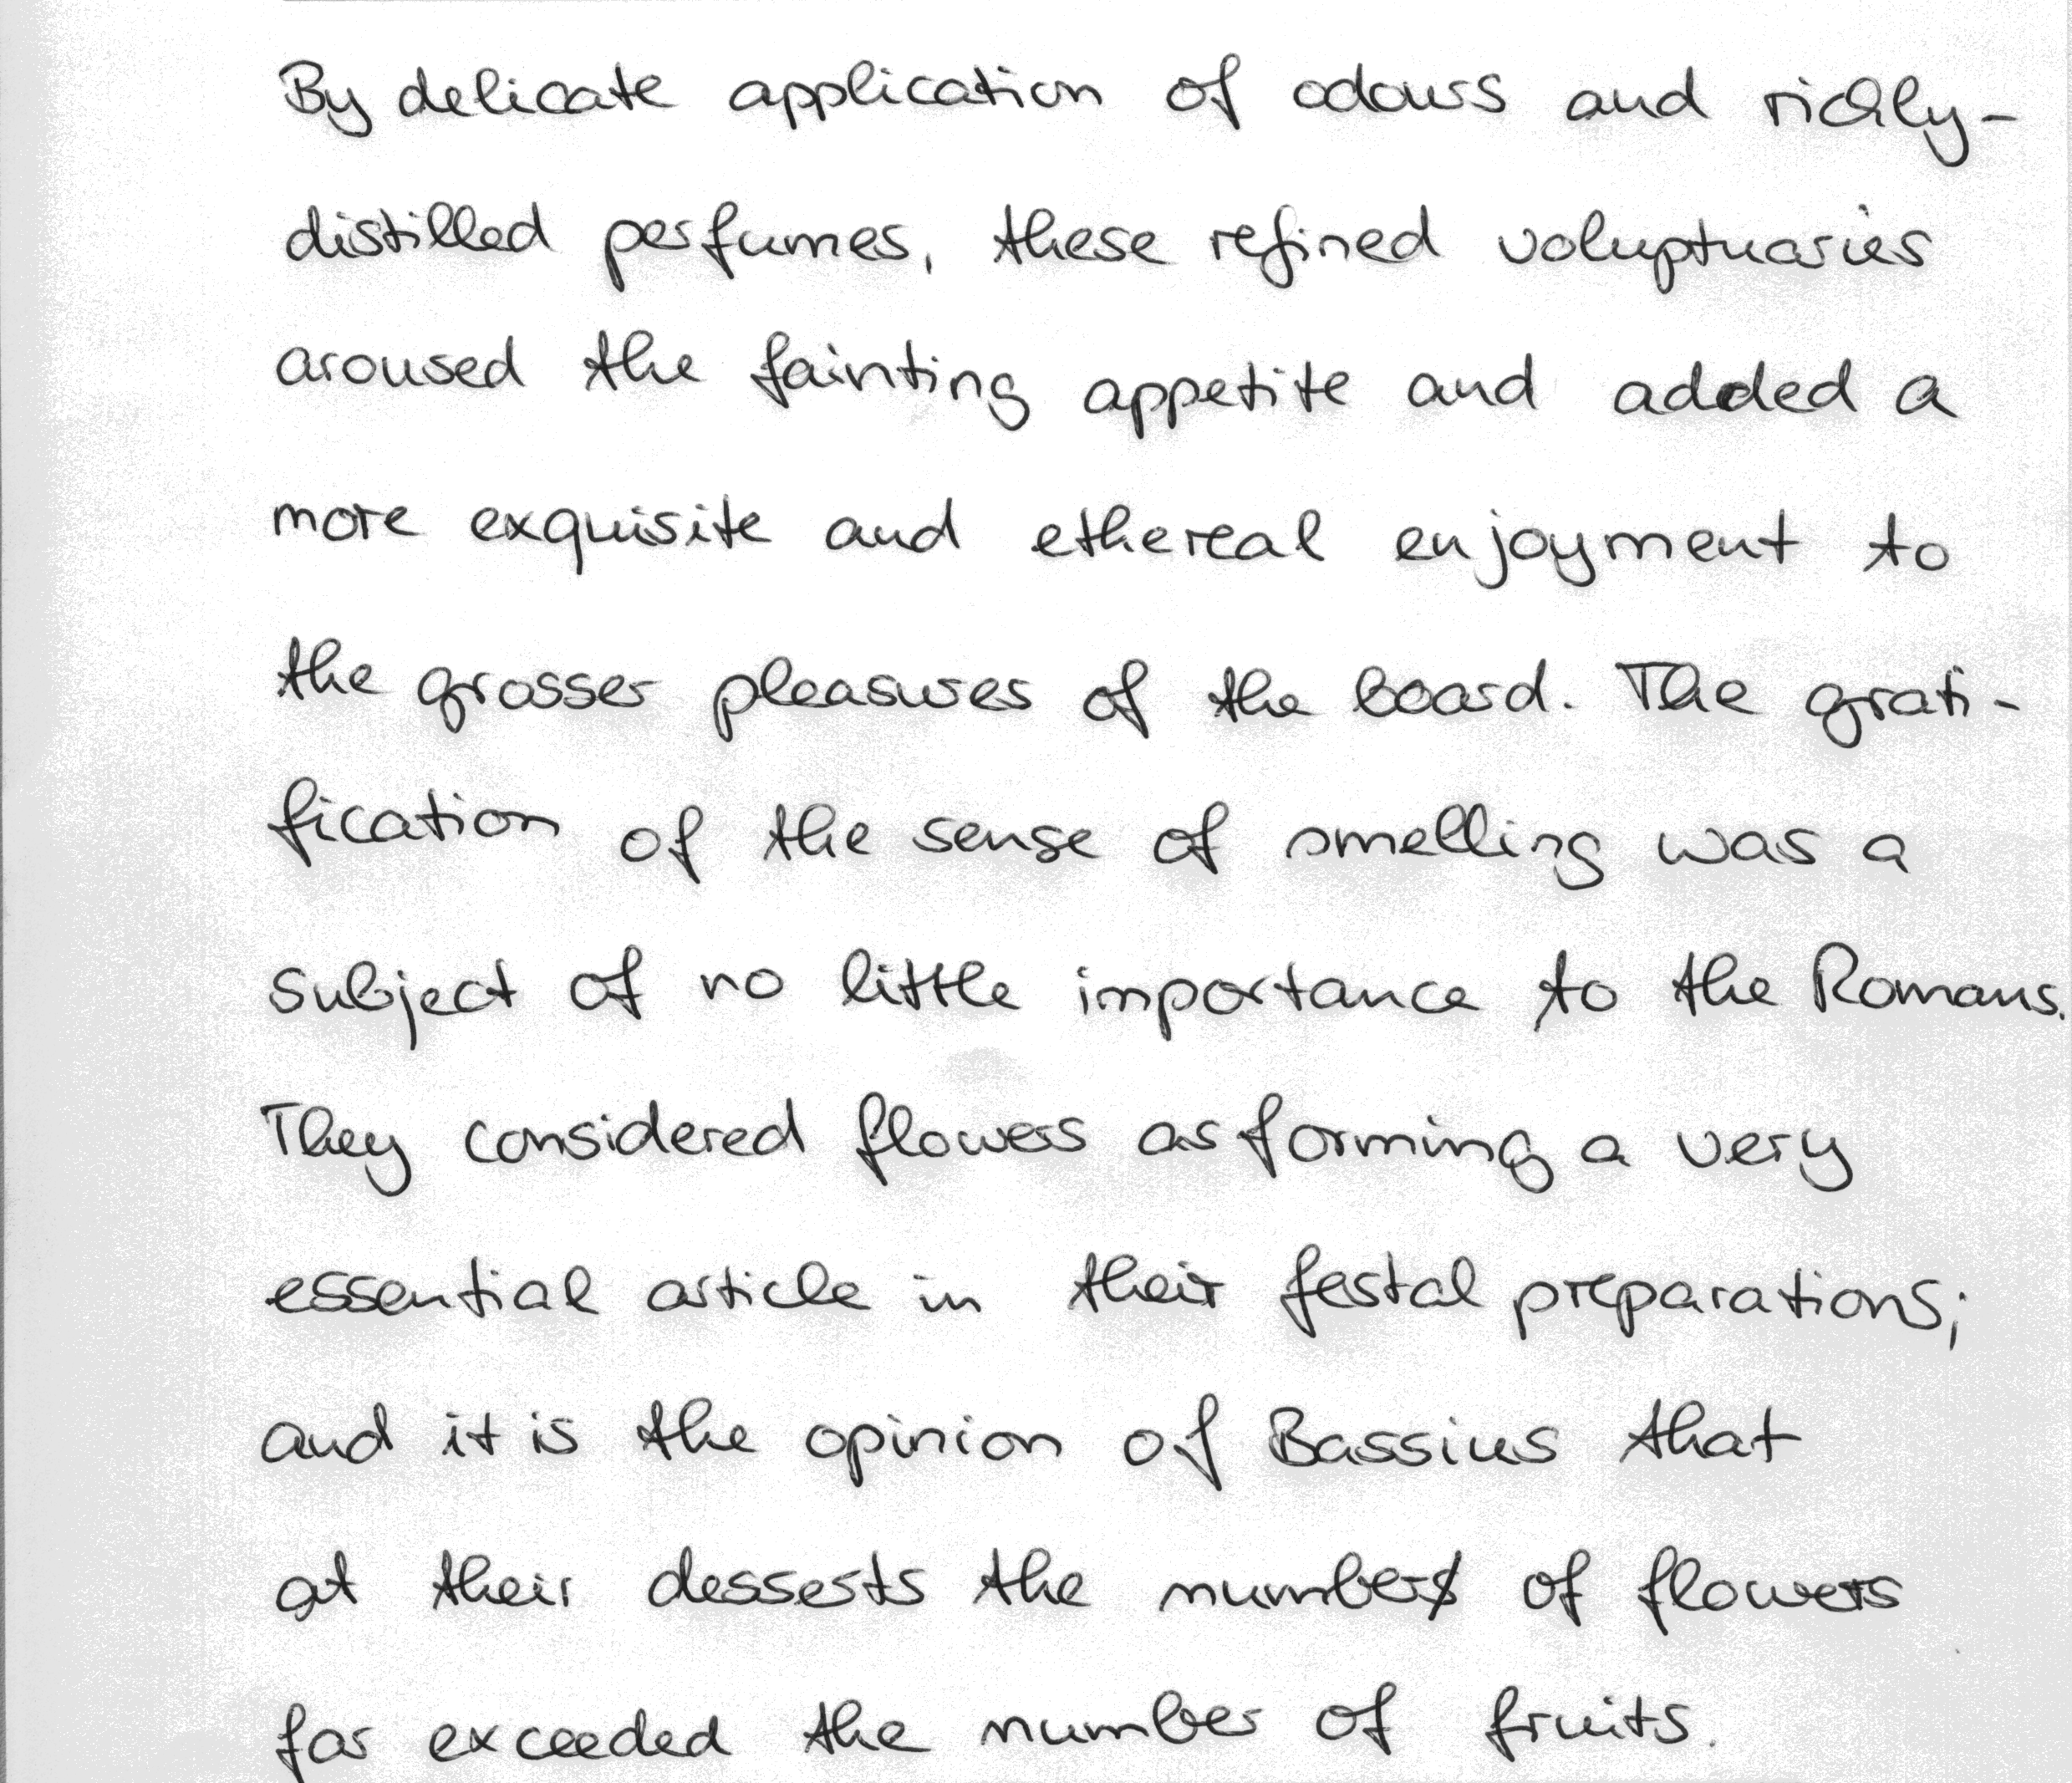 By delicate application of odours and richly-
distilled perfumes, these refined voluptuaries
aroused the fainting appetite and added a
more exquisite and ethereal enjoyment to
the grosser pleasures of the board. The grati-
fication of the sense of smelling was a
subject of no little importance to the Romans.
They considered flowers as forming a very
essential article in their festal preparations;
and it is the opinion of Bassius that
at their desserts the number of flowers
far exceeded the number of fruits.